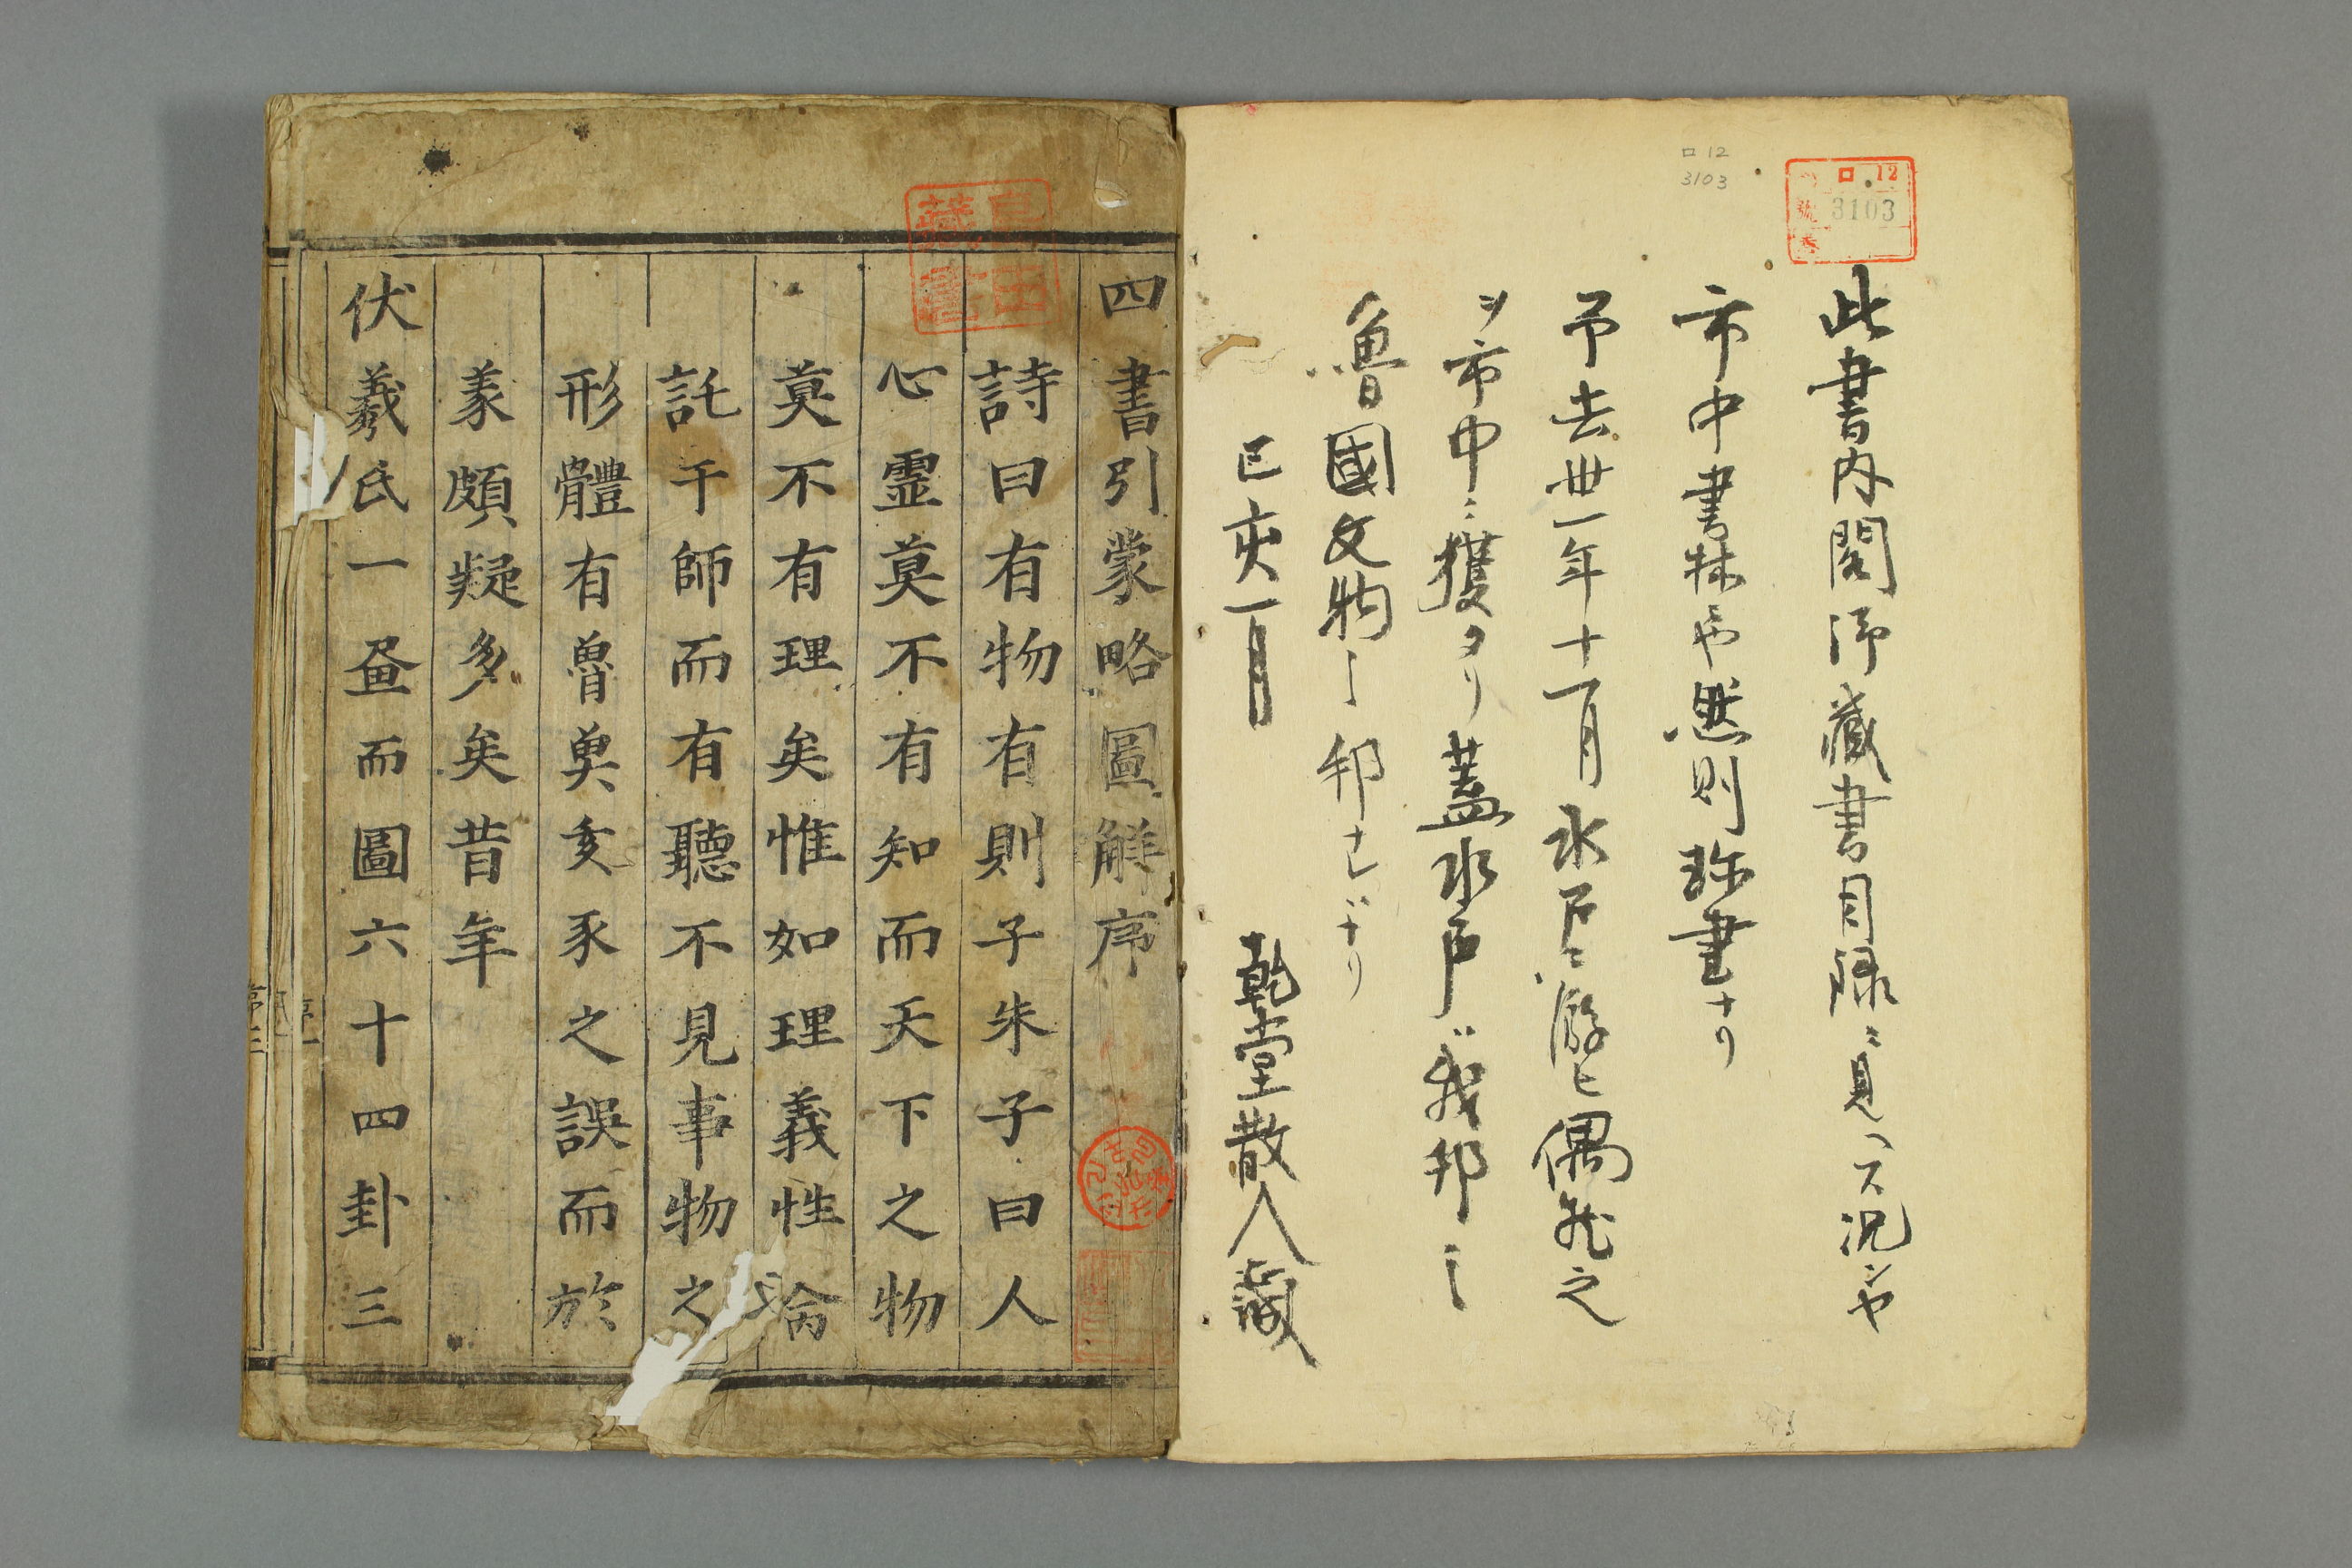 ロ 12
3103
ロ 12
號 3103
此書内閣御藏書目録ニ見ヘス况ンヤ
市中書林ニヤ然則珎書ナリ
予去丗一年十一月水戸ニ游ヒ偶然之
ヲ市中ニ獲タリ蓋水戸ハ我邦ノ
魯國文物ノ邦ナレバナリ
己亥一月
乾堂散人藏
藏書
四書引蒙略圖解序
詩曰有物有則子朱子曰人
心霊莫不有知而天下之物
莫不有理矣惟如理義性命
託于師而有聽不見事物之
形體有魯奠亥豕之誤而於
彖頗疑多矣昔年
伏羲氏一畫而圖六十四卦三